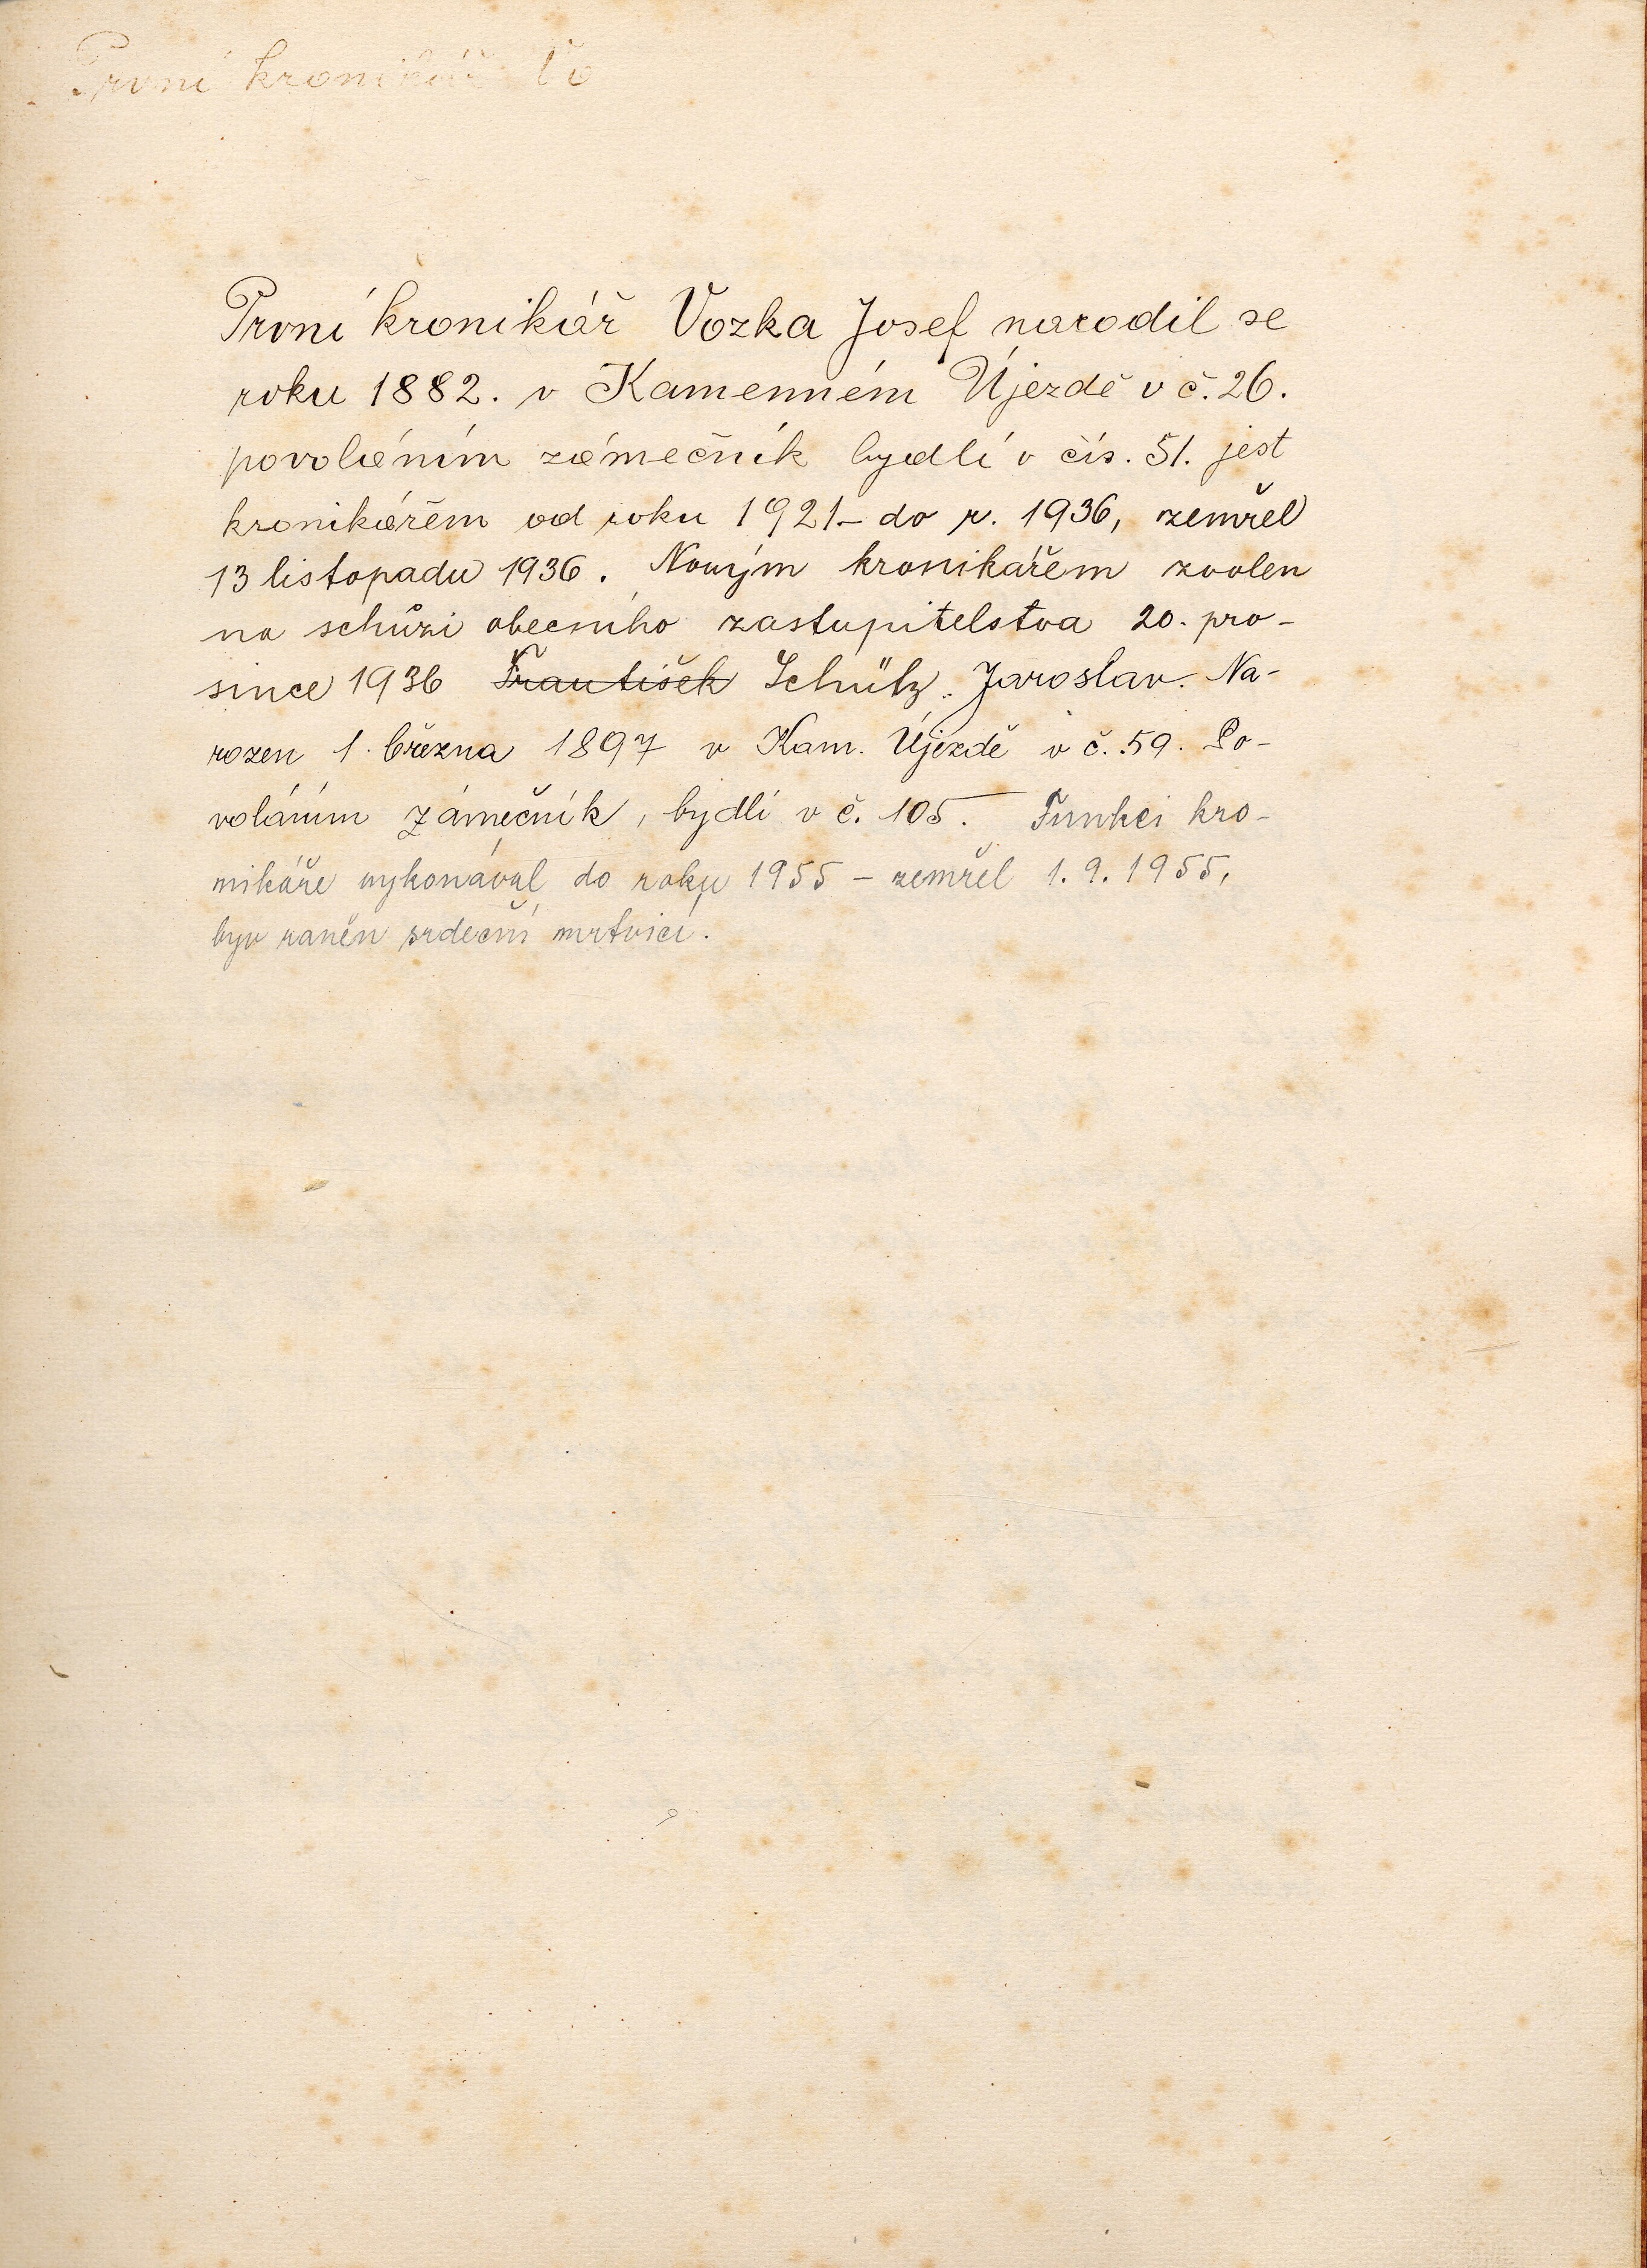 První kronikář Vo
První kronikář Vozka Josef narodil se
roku 1882. v Kamenném Újezdě v č. 26.
povoláním zámečník bydlí v čís. 51. jest
kronikářem od roku 1921 – do r. 1936, zemřel
13 listopadu 1936. Novým kronikářem zvolen
na schůzi obecního zastupitelstva 20. pro-
since 1936 František Schütz. Jaroslav. Na-
rozen 1. března 1897 v Kam. Újezdě v č. 59. Po-
voláním zámečník, bydlí v č. 105. Funkci kro-
nikáře vykonával do roku 1955 – zemřel 1. 9. 1955,
byv raněn srdeční mrtvicí.